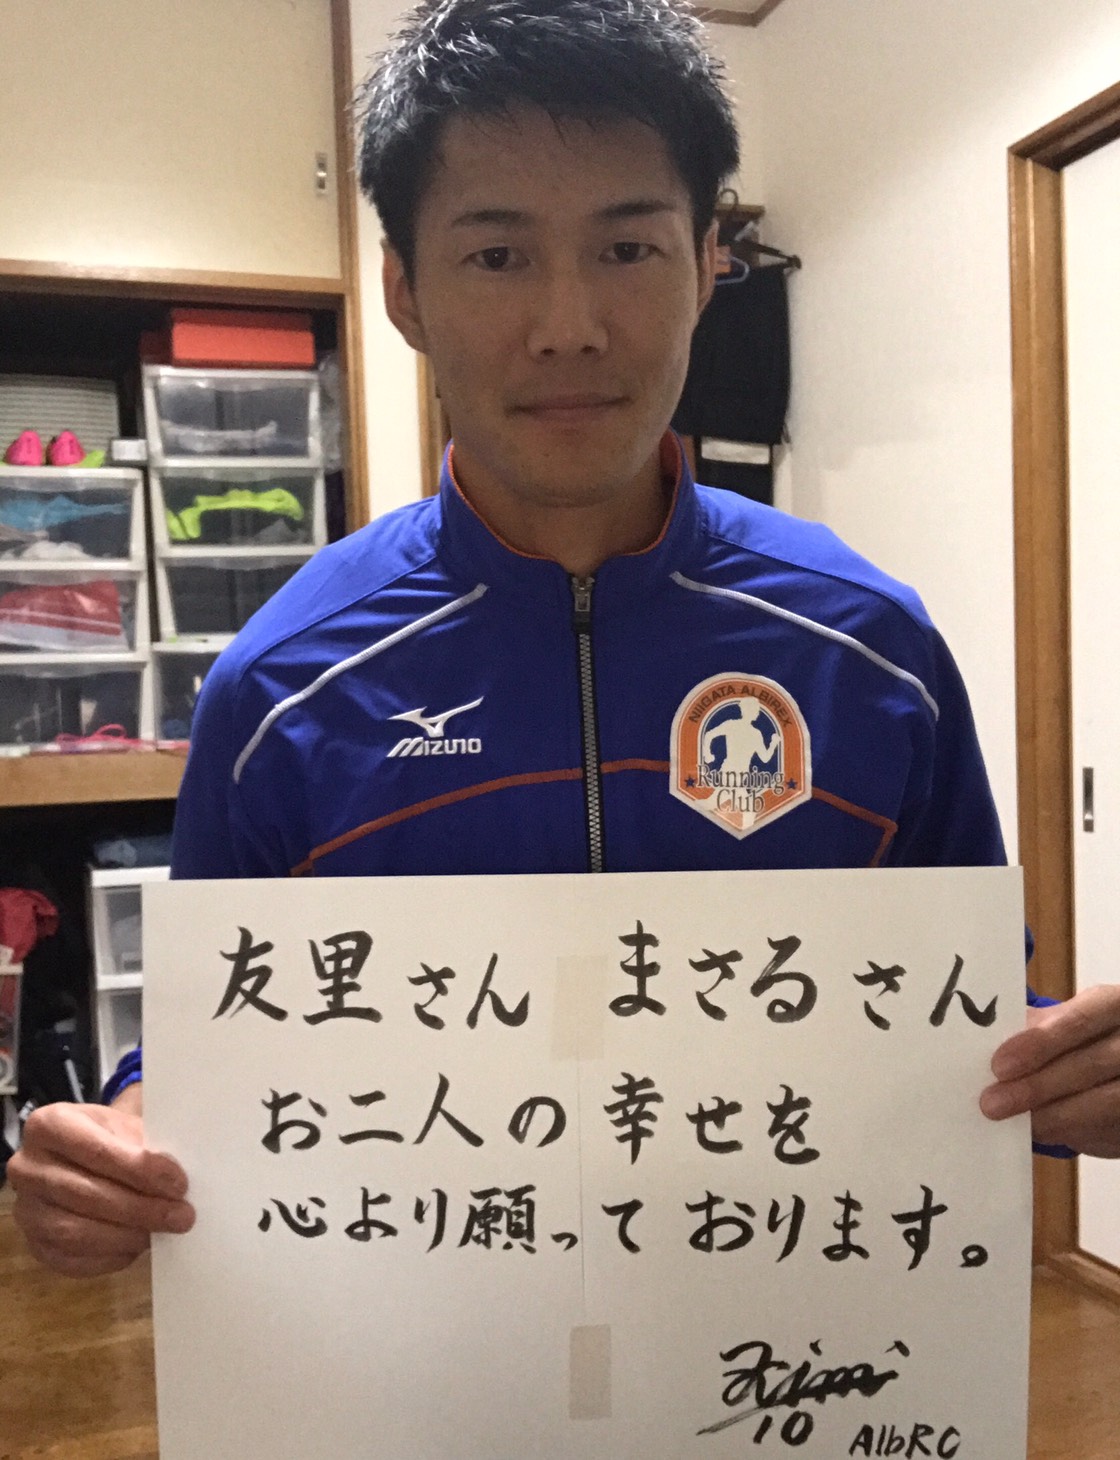 MIZUNO
NIIGATA ALBIREX
Running
Club
友里さん まさるさん
お二人の幸せを
心より願っております。
10 AlbRC